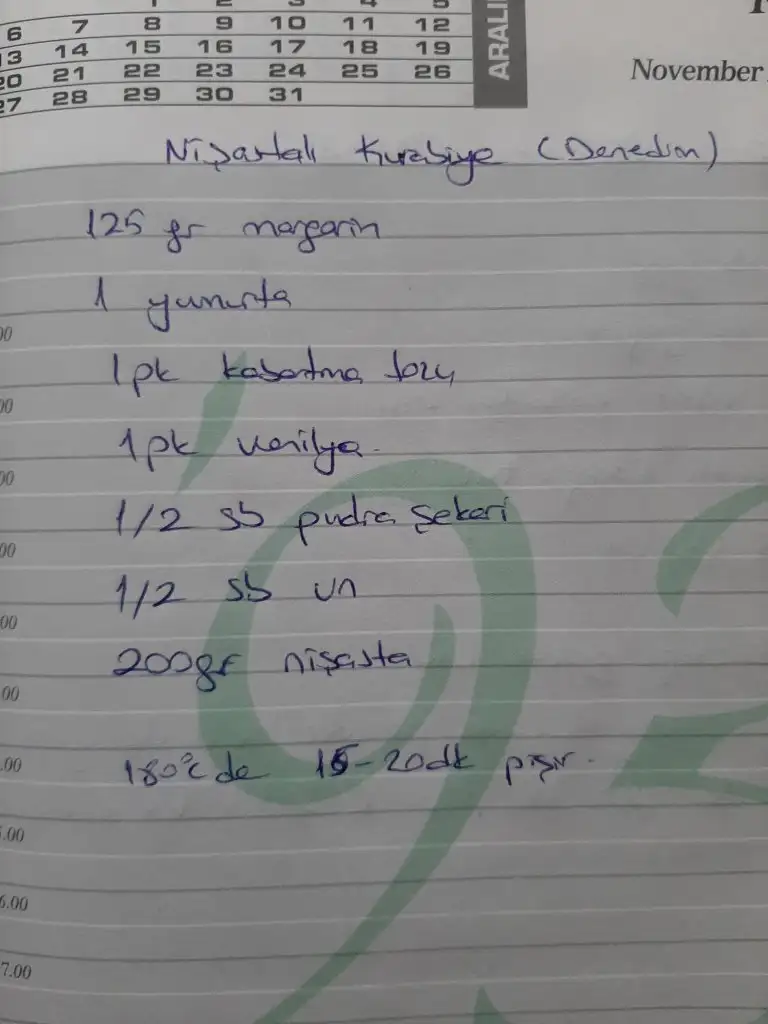 6 7 8 9 10 11 12
13 14 15 16 17 18 19
20 21 22 23 24 25 26
27 28 29 30 31
ARALI
November
Nişastalı Kurabiye (Denedim)
125 gr margarin
1 yumurta
1 pk kabartma tozu
1 pk vanilya
1/2 sb pudra şekeri
1/2 sb un
200gr nişasta
180°c de 15-20dk pişir.
00
00
00
00
00
00
.00
.00
6.00
7.00